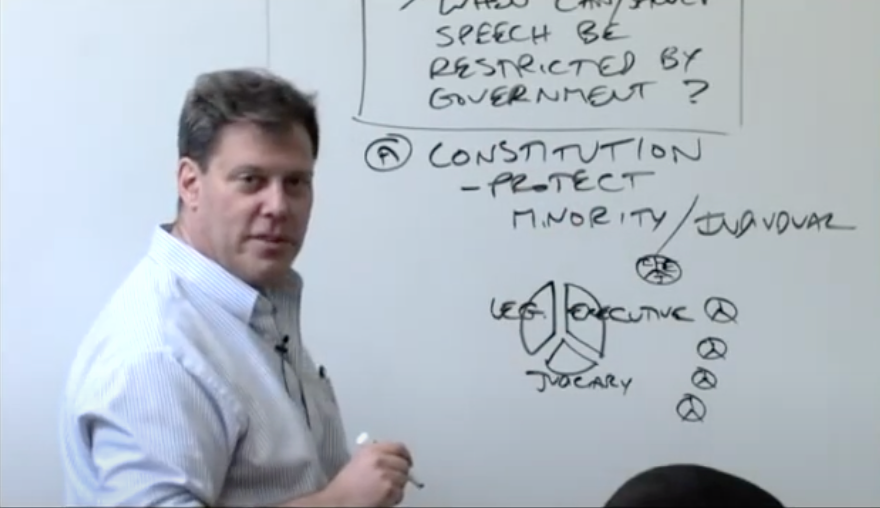 WHEN CAN/
SPEECH BE
RESTRICTED BY
GOVERNMENT ?
Ⓐ CONSTITUTION
- PROTECT
MINORITY / INDIVDUAL
LEG. EXECUTIVE
JUDCARY